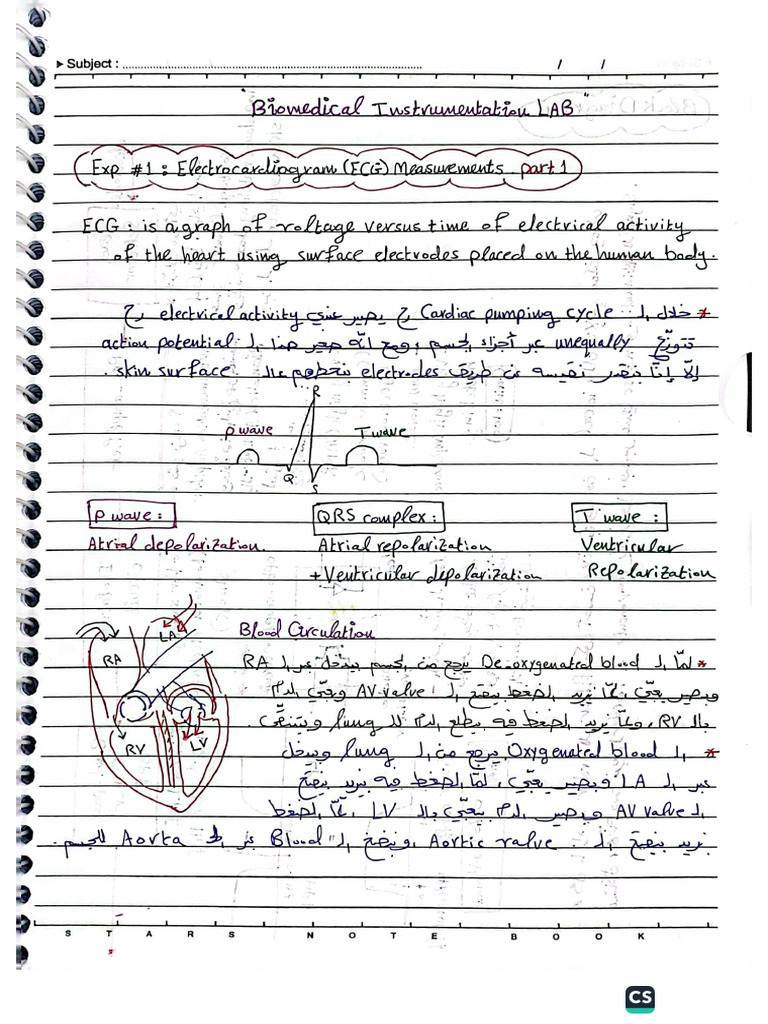 ▸ Subject : ........................................ / /
"Biomedical Instrumentation LAB"
Exp #1 : Electrocardiogram (ECG) Measurements part 1
ECG : is a graph of voltage versus time of electrical activity
of the heart using surface electrodes placed on the human body.
* خلال الـ Cardiac pumping cycle رح يصير عندي electrical activity رح
تتوزّع unequally عبر أجزاء الجسم، ومع انّه صغير هذا الـ action potential
إلّا إنّا بنقدر نقيسه عن طريق electrodes بنحطهم عالـ skin surface.
R
P wave
T wave
Q
S
P wave :
QRS complex :
T wave :
Atrial depolarization.
Atrial repolarization
Ventricular
+ Ventricular depolarization
Repolarization
LA
RA
RV
LV
Blood Circulation
* لمّا الـ De-oxygenated blood يرجع من الجسم بيدخل عبر الـ RA
وبصير يعبّي، لمّا يزيد الضغط بيفتح الـ AV valve وبعبّي الدم
بالـ RV، ولمّا يزيد الضغط فيه بطلع الدم للـ lung وبتنقّى.
* الـ Oxygenated blood بيرجع من الـ lung وبيدخل
عبر الـ LA وبصير يعبّي، لمّا الضغط فيه يزيد بيفتح
الـ AV valve وبصير الدم يعبّي بالـ LV، لمّا الضغط
يزيد بيفتح الـ Aortic valve، وبضخ الـ Blood عبر الـ Aorta للجسم.
S T A R S N O T E B O O K
CS